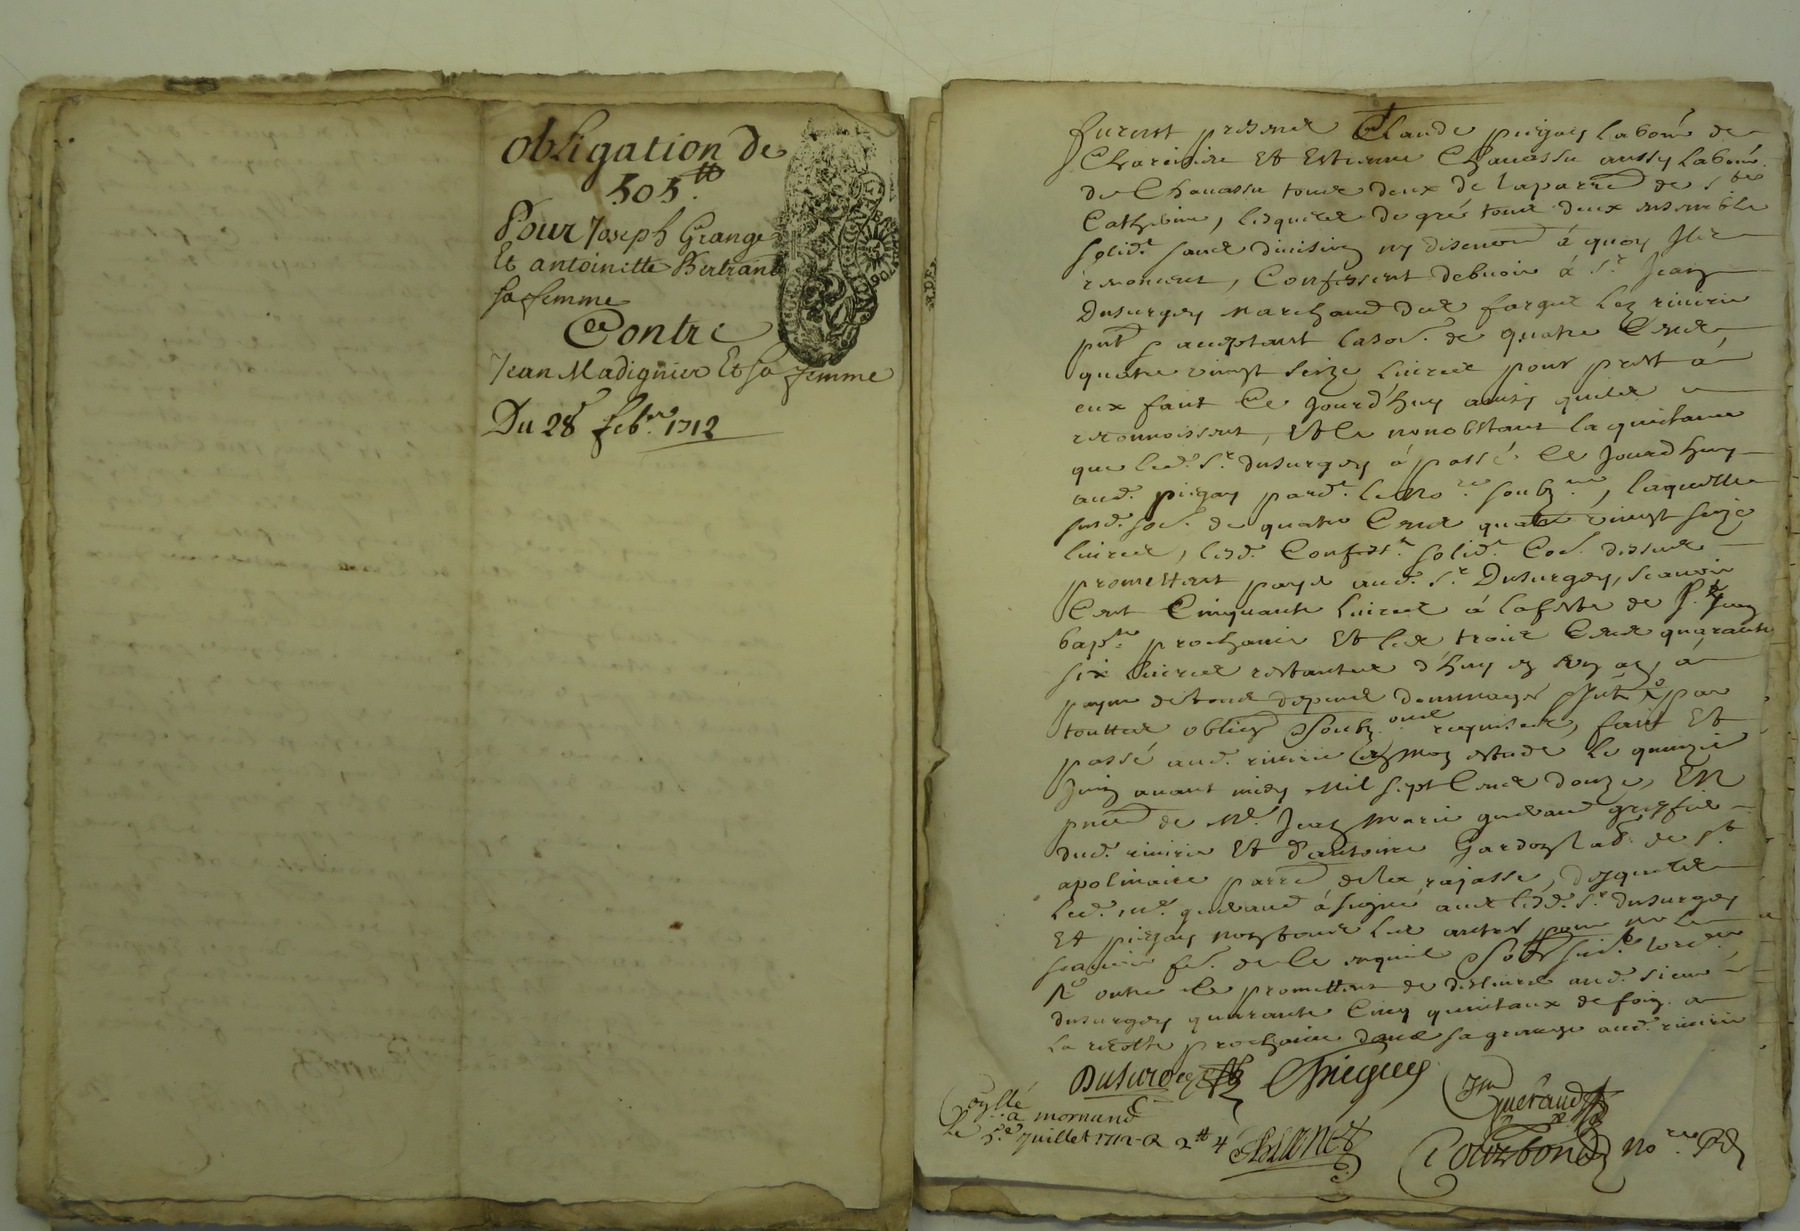 Obligation de
505 ₶
Pour Joseph Grange
Et antoinette Bertrand
sa femme
Contre
Jean Madignier Et sa femme
Du 28e feb.er 1712
furent presens Claude pieգay labour de
Et Estienne Chauassu aussy labour.
de Chauassu tous deux de la parre de Ste
Catherine, lesquels de gré tous deux ensemble
solid.t sans division ny discuon à quoy Ils
renoncent, Confessent debuoir à Sr Jean
Dusurgey marchand des farges lez riuirie
pnt & acceptant la so.e de quatre Cens
quatre vingt seize liures pour prest à
eux fait Ce Jourd'huy ainsy quils
reconnoissent, Et Ce nonobstant la quittance
que led. Sr. dusurgey à passé Ce Jourd'huy
aud. piegay pard.t le No.re soubz.né, laquelle
susd. so.e de quatre Cens quatre vingt seize
liures, lesd. Confess.ts solid.t Co.e dessus
promettent payer aud. Sr Dusurgey, scauoir
Cent Cinquante liures à la feste de St Jean
bap.te prochaine Et les trois Cens quarante
six liures restantes d'huy en un an, à
peyne de tous depens dommages
touttes oblig.on Soubz.ons requises, fait Et
passé aud. riuirie En mon estude le quinzie
Juin auant midy Mil sept Cens douze, EN
pnce de Me. Jean Marie gueraud greffier
dud. riuirie Et d'antoine Gardon lab.r de St
apolinaire parre de la rajasse, desquels
led. Me. gueraud à signé auec lesd. Sr. dusurgey
Et piegay non tous les autres pour ne le
scauoir fe.
Et outre ce promettent de deslivrer aud. sieur
dusurgey quarante Cinq quintaux de foin à
la recolte prochaine dans sa grange aud. riuirie
Dusurgey
Piegay
Jm Gueraud
Coyllé
à mornand
le 5.e Juillet 1712 - R 2 ₶ 4
Bourbon no.re Rl